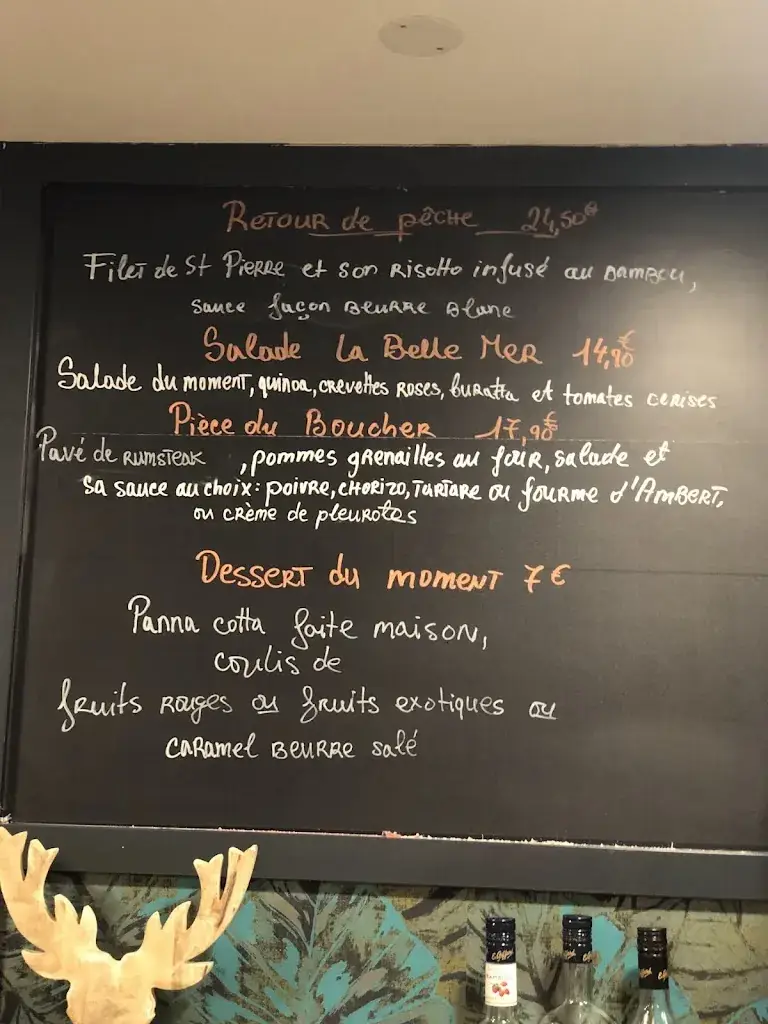 Retour de pêche 24,50€
Filet de St Pierre et son risotto infusé au bambou,
sauce façon beurre blanc
Salade La Belle Mer 14,90€
Salade du moment, quinoa, crevettes roses, buratta et tomates cerises
Pièce du Boucher 17,90€
Pavé de rumsteak , pommes grenailles au four, salade et
sa sauce au choix: poivre, chorizo, tartare ou fourme d'Ambert,
ou crème de pleurotes
Dessert du moment 7€
Panna cotta faite maison,
coulis de
fruits rouges ou fruits exotiques ou
caramel beurre salé